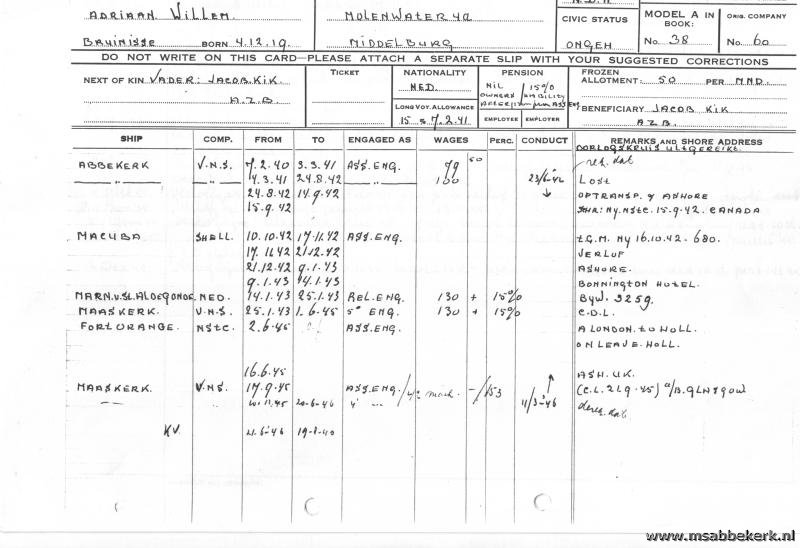 ADRIAAN WILLEM.
MOLENWATER 42
BRUINISSE BORN 4.12.19.
MIDDELBURG
CIVIC STATUS
ONGEH
MODEL A IN BOOK:
No. 38
ORIG. COMPANY
No. 60
DO NOT WRITE ON THIS CARD—PLEASE ATTACH A SEPARATE SLIP WITH YOUR SUGGESTED CORRECTIONS
NEXT OF KIN VADER: JACOB KIK.
A.Z.B.
TICKET
NATIONALITY
NED.
LONG VOY. ALLOWANCE
PENSION
NIL 15%
EMPLOYEE EMPLOYER
FROZEN
ALLOTMENT: 50 PER MND.
BENEFICIARY JACOB KIK
A.Z.B.
SHIP COMP. FROM TO ENGAGED AS WAGES PERC. CONDUCT REMARKS AND SHORE ADDRESS
OORLOGSKRUIS UITGEREIKT.
ABBEKERK V.N.S. 7.2.40 3.3.41 ASS.ENG. 99 50
—"— —"— 4.3.41 24.8.42 —"— 100 23/6-42 LOST
24.8.42 14.9.42 OPTRANSP. & ASHORE
15.9.42 SHR: NY. NSTC. 15.9.42. CANADA
MACUBA SHELL. 10.10.42 17.11.42 ASS.ENG. t.G.M. NY 16.10.42 - 680.
17.11.42 21.12.42 VERLUF
21.12.42 9.1.43 ASHORE.
9.1.43 14.1.43 BONNINGTON HOTEL.
MARN.V.ST.ALDEGONDE. NED. 14.1.43 25.1.43 REL.ENG. 130 + 15% BYW. 3259.
MAASKERK. V.N.S. 25.1.43 1.6.45 5e ENG. 130 + 15% C.D.L.
FORT ORANGE. NSTC. 2.6.45 ASS.ENG. A LONDON. TO HOLL.
ON LEAVE. HOLL.
16.6.45 ASH. UK.
MAASKERK. V.N.S. 17.9.45 ASS.ENG./4e mach. -/153 (C.L. 219-45) a/B. GLASGOW
20-6-46 11/3-46
KV. 21.6-46
www.msabbekerk.nl